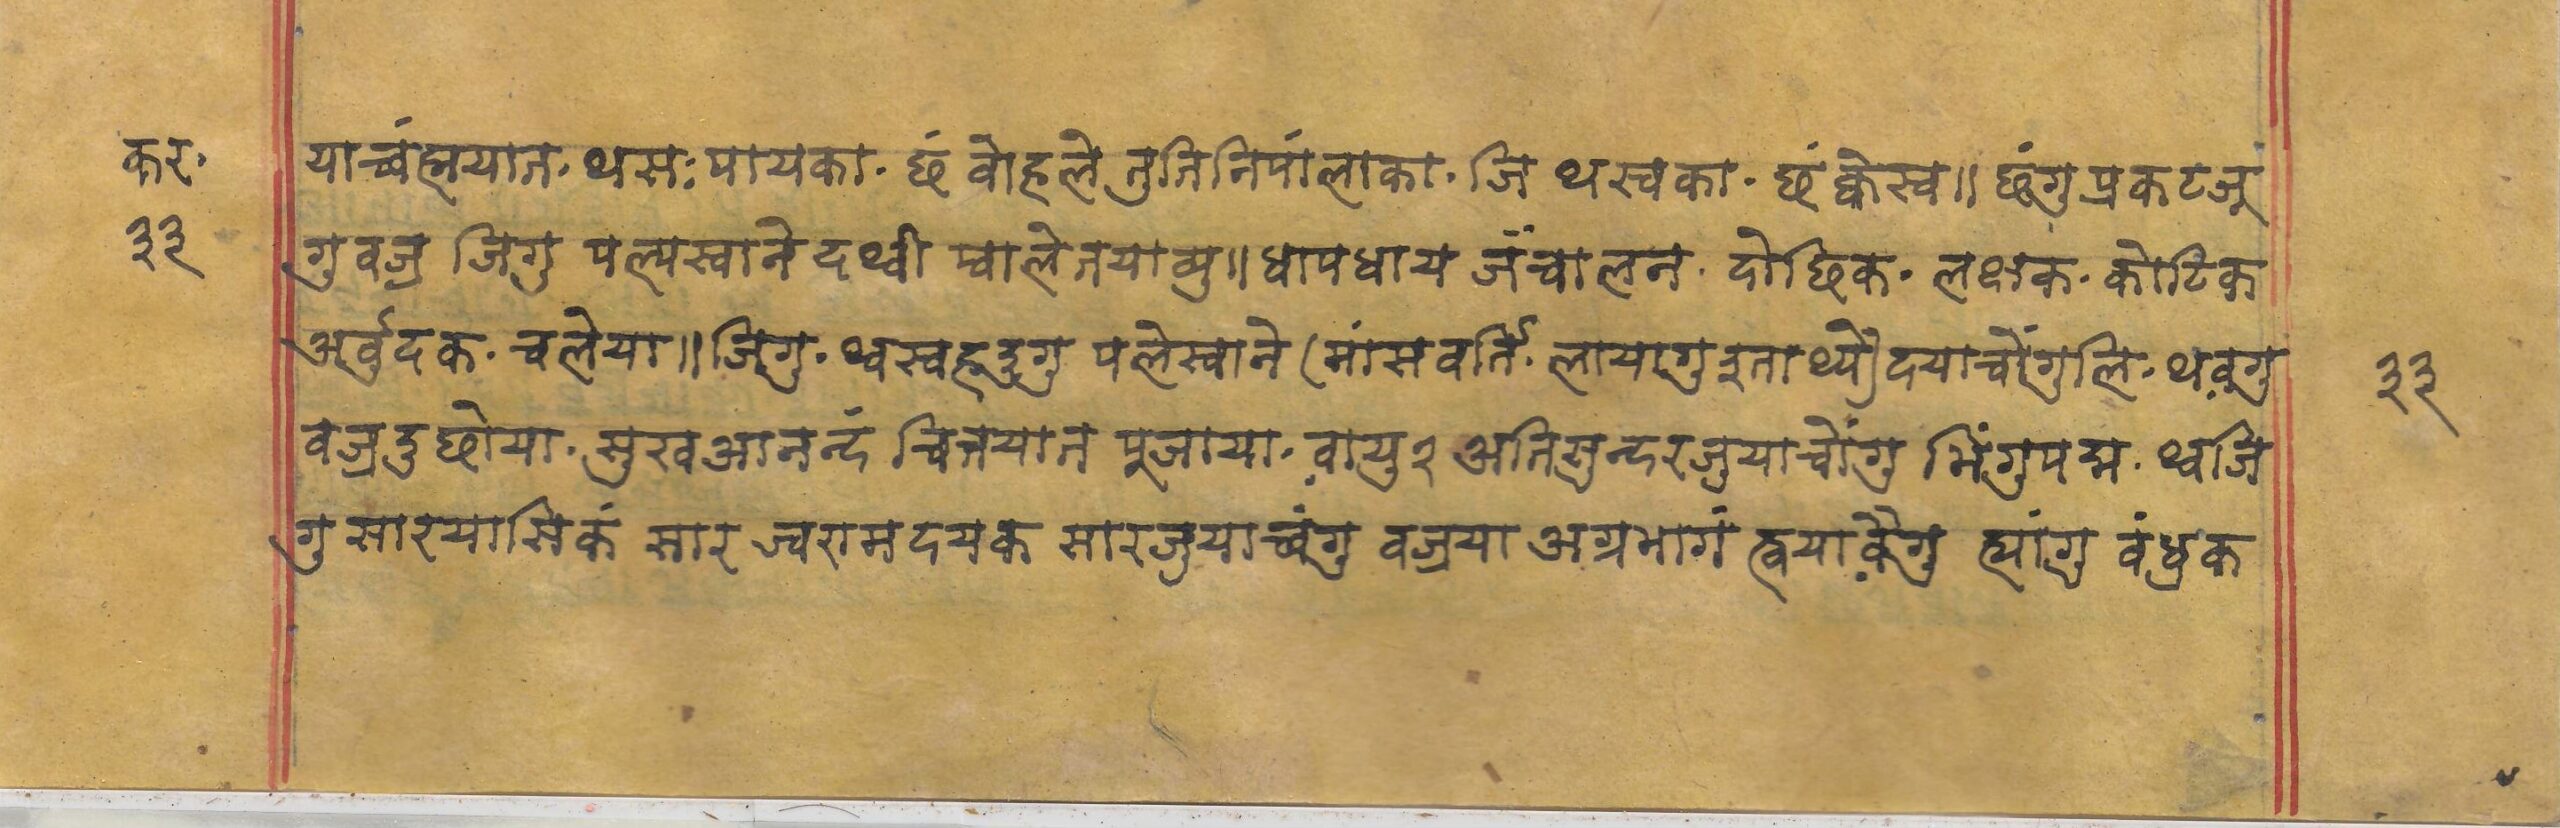 कर·
३३
याच्वंह्मयात· थसः पायका· छं वोहले तुतिनिपांलाका· जि थस्वका· छं क्वेस्व॥ छंगु प्रकटजू
गु वज्र जिगु पल्यस्वाने दथ्वी म्वालेतयाव्यु॥ धापधाय जंचालन· दोछिक· लक्षक· कोटिक
अर्वुदक· चलेया॥ जिगु· थ्वस्वहदुगु पलेस्वाने (मांसवर्ति· लायागु इताथ्यें) दयाचोंगुलि· थवगु
वज्र दुछोया· सुखआनन्दं चित्तयात पूजाया· वायु २ अतिसुन्दरजुयाचोंगु भिंगुपद्म· थ्वजि
गु सारयासिकं सार ज्वरामदयक सारजुयाच्वंगु वज्रया अग्रभागं ह्वयाकैगु ह्यांगु वंधुक
३३